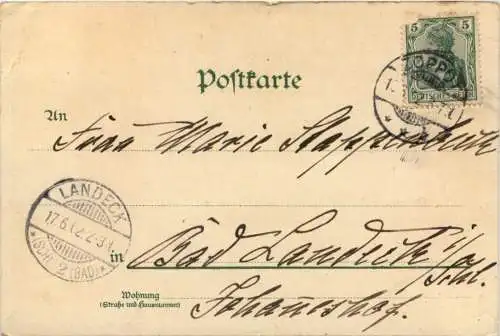 5 5
DEUTSCHES REICH
ZOPPOT
Postkarte
An
Frau Marie Stappenbeck
LANDECK
17.6.02. 2-3 N.
*(SCHL.) 2 (BAD)*
in Bad Landeck i/
Schl.
Wohnung
(Straße und Hausnummer)
Johanneshof.